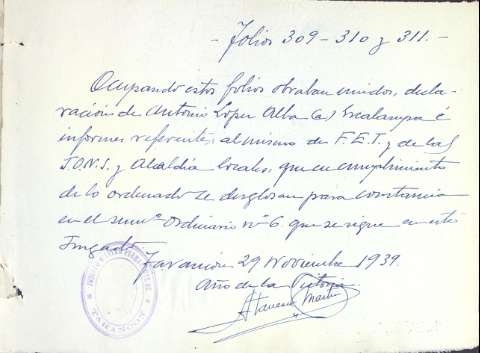 - Folios 309-310 y 311.-
Ocupando estos folios obraban unidos, decla-
ración de Antonio Lopez Alba (a) Escalampa é
informes referentes al mismo de F.E.T. y de las
J.O.N.S. y Alcaldia locales, que en cumplimiento
de lo ordenado se desglosan para constancia
en el sumº Ordinario nº 6 que se sigue en este
Juzgado.
Tarancón 29 Noviembre 1939.
Año de la Victoria.
TARANCON